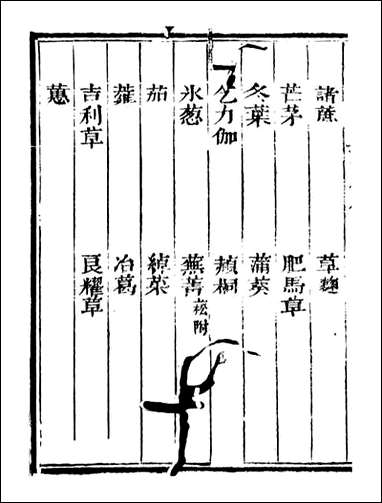 諸蔗 草麴
芒茅 肥馬草
冬葉 蒲葵
乞力伽 赬桐
水葱 蕪菁 菘附
茄 綽菜
蕹 冶葛
吉利草 良耀草
蕙